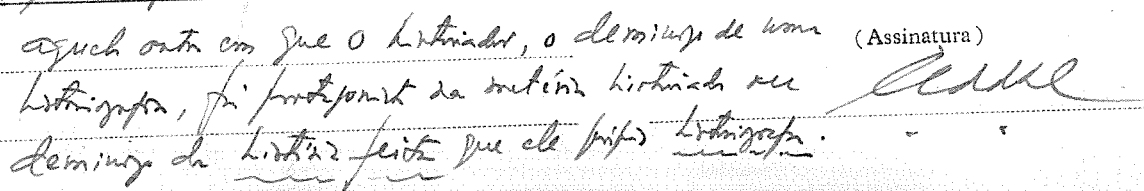 aquela outra em que o historiador, o demiurgo de uma (Assinatura)
historiografia, foi protagonista da matéria historiada ou
demiurgo da história feita que ele próprio historiografa.